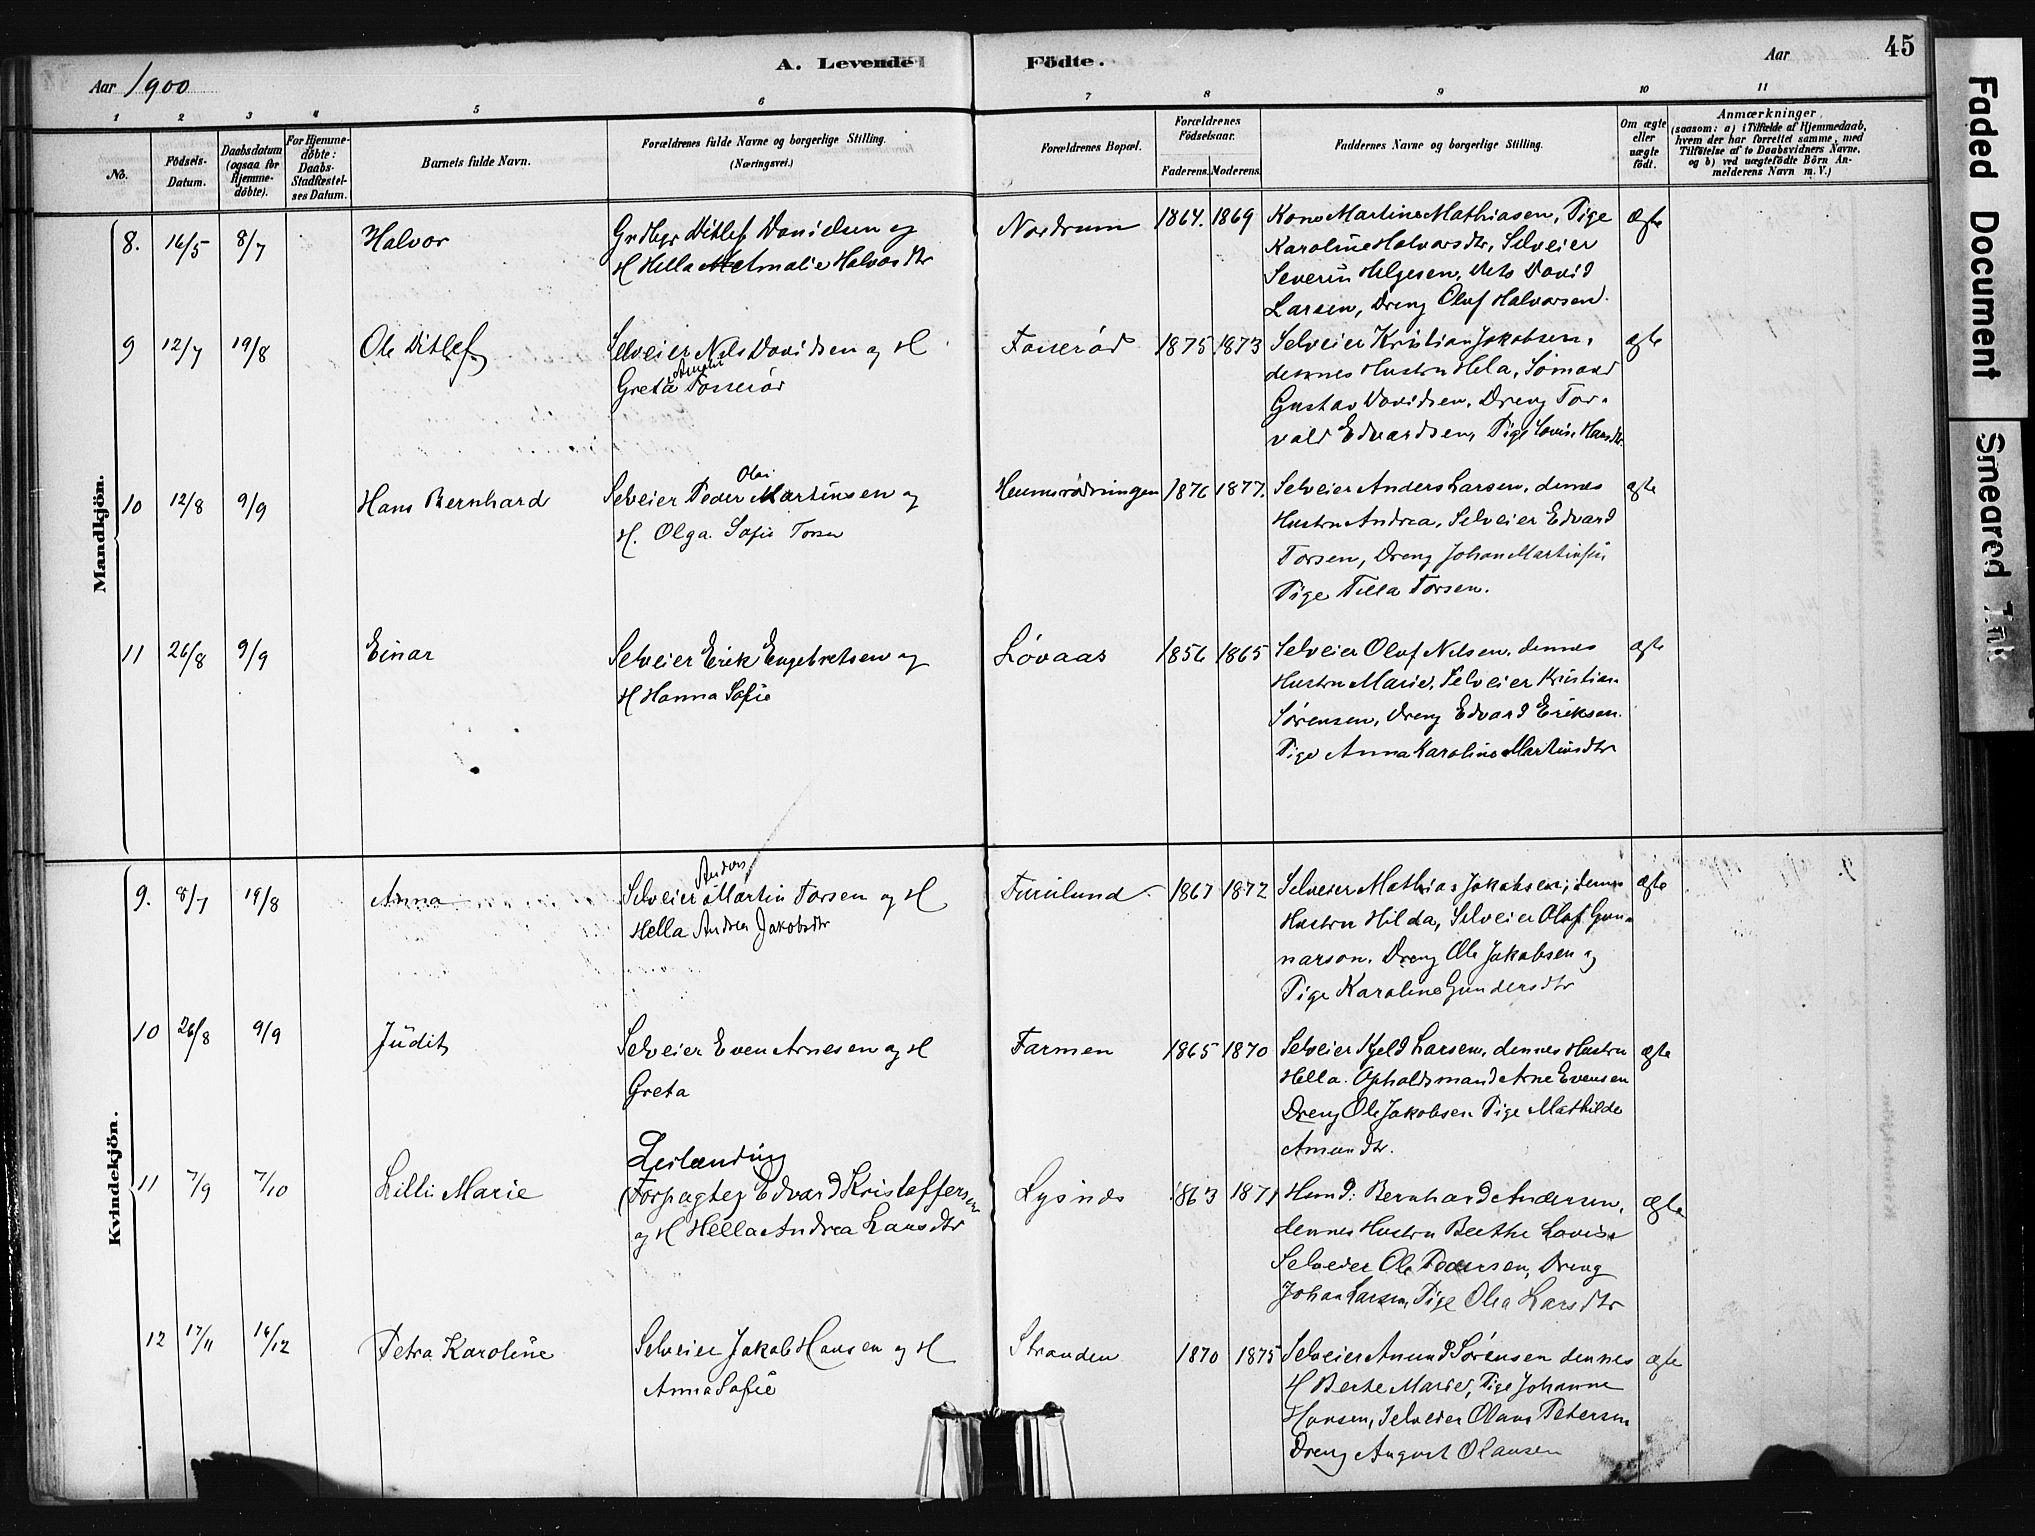 45
Aar 1900
A. Levende
Födte.
Aar
1 2 3 4 5 6 7 8 9 10 11
No.
Födsels-
Datum.
Daabsdatum
(ogsaa for
Hjemme-
döbte).
For Hjemme-
döbte:
Daabs-
Stadfæstel-
ses Datum.
Barnets fulde Navn.
Forældrenes fulde Navne og borgerlige Stilling.
(Næringsvei.)
Forældrenes Bopæl.
Forældrenes
Födselsaar.
Faderens. Moderens.
Faddernes Navne og borgerlige Stilling.
Om ægte
eller
uægte
födt.
Anmærkninger
(saasom: a) i Tilfælde af Hjemmedaab,
hvem der har forrettet samme, med
Tilföielse af to Daabsvidners Navne,
og b) ved uægtefödte Börn An-
melderens Navn m. V.)
Mandkjön.
8. 16/5 8/7 Halvor
Grdbgr Ditlef Davidsen og
H Hella Amalie Halvorsdtr
Nordrum 1864. 1869
Kone Martine Mathiasen, Pige
Karoline Halvorsdtr, Selveier
Severin Helgesen, David
Larsen, Dreng Oluf Halvorsen.
Ægte
9 12/7 19/8 Ole Ditlef
Selveier Nils Davidsen og H
Greta Amalie Fosserød
Fosserød 1875 1873
Selveier Kristian Jakobsen,
dennes Hustru Hela, Sømand
Gustav Davidsen, Dreng Tor-
vald Edvardsen, Pige Lovise Hansdtr
ægte
10 12/8 9/9 Hans Bernhard
Selveier Peder Olai Martinsen og
H. Olga Sofie Torsen
1876 1877.
Selveier Anders Larsen, dennes
Hustru Andrea, Selveier Edvard
Torsen, Dreng Johan Martinsen
Pige Tilla Torsen.
ægte
11 26/8 9/9 Einar
Selveier Erik Engebretsen og
H Hanna Sofie
Løvaas 1856 1865
Selveier Oluf Nilsen, dennes
Hustru Marie, Selveier Kristian
Sørensen, Dreng Edvard Eriksen.
Pige Anna Karoline Martinsdtr
ægte
Kvindekjön.
9. 8/7 19/8 Anna
Selveier Anders Martin Torsen og H
Hella Andrea Jakobsdtr
Furulund 1867 1872
Selveier Mathias Jakobsen, dennes
Hustru Hilda, Selveier Oluf Gun-
narson. Dreng Ole Jakobsen og
Pige Karoline Gundersdtr
ægte
10 26/8 9/9 Judit
Selveier Even Arnesen og H
Greta
Farmen 1865 1870
Selveier Kjeld Larsen, dennes Hustru
Hella. Opholdsmand Arne Evensen
Dreng Ole Jakobsen Pige Mathilde
Amundtr.
ægte
11 7/9 7/10 Lilli Marie
Leilænding
(Forpagter Edvard Kristoffersen
og H Hella Andrea Larsdtr
Lysnes 1863 1871
Husmd: Bernhard Andersen,
dennes Hustru Berthe Lovise
Selveier Ole Pedersen, Dreng
Johan Larsen, Pige Olea Larsdtr
Ægte
12 17/11 16/12 Petra Karoline
Selveier Jakob Hansen og H
Anna Sofie
Stranden 1870 1875
Selveier Amund Sørensen dennes
H Berte Marie, Pige Johanne
Hansen, Selveier Olaus Petersen
Dreng August Olausen
ægte
Faded Document
Smeared Ink